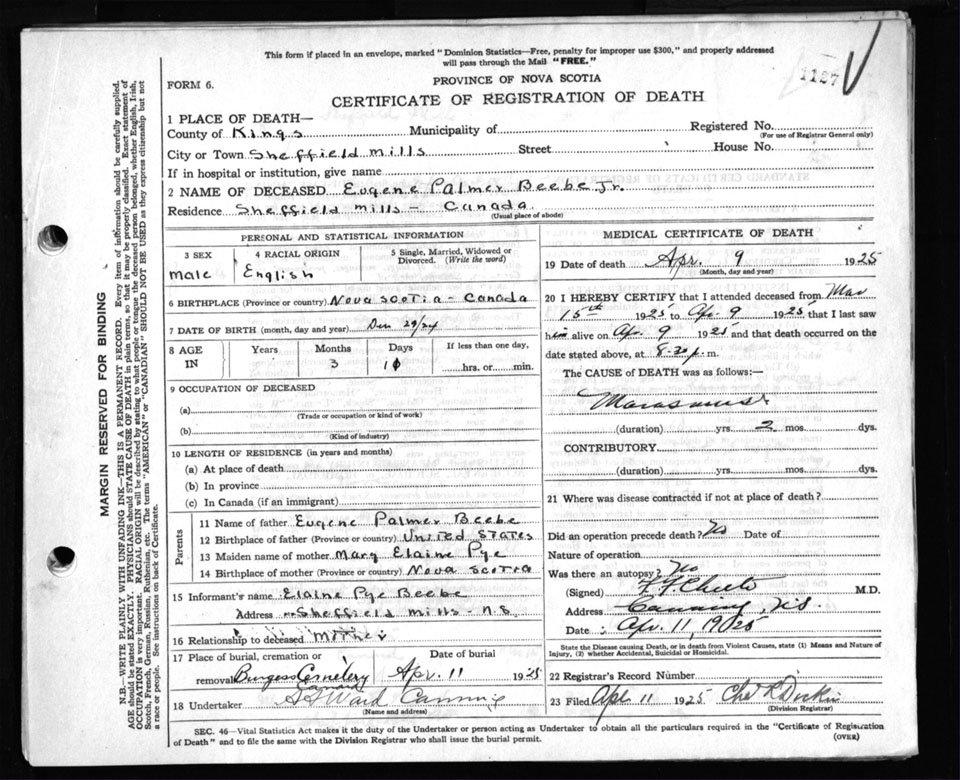 This form if placed in an envelope, marked "Dominion Statistics—Free, penalty for improper use $300," and properly addressed
will pass through the Mail "FREE."
1127
FORM 6.
PROVINCE OF NOVA SCOTIA
CERTIFICATE OF REGISTRATION OF DEATH
1 PLACE OF DEATH—
County of Kings Municipality of Registered No.
(For use of Registrar General only)
City or Town Sheffield Mills Street House No.
If in hospital or institution, give name
2 NAME OF DECEASED Eugene Palmer Beebe Jr.
Residence Sheffield Mills - Canada
(Usual place of abode)
PERSONAL AND STATISTICAL INFORMATION
3 SEX 4 RACIAL ORIGIN 5 Single, Married, Widowed or
Divorced. (Write the word)
Male English
6 BIRTHPLACE (Province or country) Nova Scotia - Canada
7 DATE OF BIRTH (month, day and year) Dec 29/24
8 AGE IN Years Months Days If less than one day,
3 10 hrs. or min.
9 OCCUPATION OF DECEASED
(a)
(Trade or occupation or kind of work)
(b)
(Kind of industry)
10 LENGTH OF RESIDENCE (in years and months)
(a) At place of death
(b) In province
(c) In Canada (if an immigrant)
Parents
11 Name of father Eugene Palmer Beebe
12 Birthplace of father (Province or country) United States
13 Maiden name of mother Mary Elaine Pye
14 Birthplace of mother (Province or country) Nova Scotia
15 Informant's name Elaine Pye Beebe
Address Sheffield Mills - N.S
16 Relationship to deceased Mother
17 Place of burial, cremation or Date of burial
removal Burgess Cemetery Apr. 11 1925
18 Undertaker Ward Canning
(Name and address)
MEDICAL CERTIFICATE OF DEATH
19 Date of death Apr. 9 1925
(Month, day and year)
20 I HEREBY CERTIFY that I attended deceased from Mar
15th 1925 to Ap. 9 1925 that I last saw
him alive on Ap. 9 1925 and that death occurred on the
date stated above, at 8.30 p.m.
The CAUSE of DEATH was as follows:—
Marasmus
(duration) yrs. 2 mos. dys.
CONTRIBUTORY
(duration) yrs. mos. dys.
21 Where was disease contracted if not at place of death?
Did an operation precede death? No Date of
Nature of operation
Was there an autopsy? No
(Signed) M.D.
Address Canning, N.S.
Date Apr. 11, 1925
State the Disease causing Death, or in death from Violent Causes, state (1) Means and Nature of
Injury, (2) whether Accidental, Suicidal or Homicidal.
22 Registrar's Record Number
23 Filed Apl 11 1925
(Division Registrar)
SEC. 46—Vital Statistics Act makes it the duty of the Undertaker or person acting as Undertaker to obtain all the particulars required in the "Certificate of Registration
of Death" and to file the same with the Division Registrar who shall issue the burial permit. (OVER)
MARGIN RESERVED FOR BINDING
N.B.—WRITE PLAINLY WITH UNFADING INK—THIS IS A PERMANENT RECORD. Every item of information should be carefully supplied.
AGE should be stated EXACTLY. PHYSICIANS should STATE CAUSE OF DEATH in plain terms, so that it may be properly classified. Exact statement of
OCCUPATION is very important. RACIAL ORIGIN will be described by stating to what people or tongue the deceased person belonged, whether English, Irish,
Scotch, French, German, Russian, Ruthenian, etc. The terms "AMERICAN" or "CANADIAN" SHOULD NOT BE USED as they express citizenship but not
a race or people. See instructions on back of Certificate.